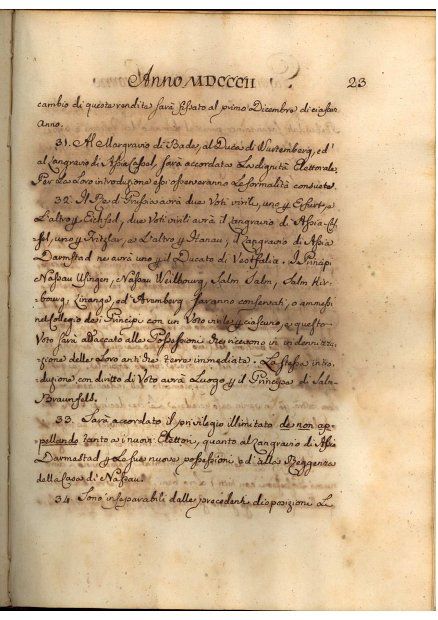 Anno MDCCCII 23
cambio di questa rendita sarà fissato al primo Dicembre di ciascun
anno.
31. Al Margravio di Bade, al Duca di Wurtemberg, ed
al Langravio di Assia Cassel, sarà accordata la dignità Elettorale.
Per la loro introduzione essi osserveranno le formalità consuete.
32. Il Re di Prussia avrà due Voti virili, uno p Erfurt, e
l'altro p Eichsfed, due Voti virili avrà il Langravio di Assia-Cas-
sel, uno p Fritzlar, e l'altro p Hanau; il Langravio di Assia
Darmstad ne avrà uno p il Ducato di Vestfalia. I Principi
Nassau Usingen, e Nassau Weilbourg, Salm Salm, Salm Kir-
bourg, Linange, ed Aremberg saranno conservati, o ammessi
nel Collegio dei Principi con un Voto virile p ciascuno, e questo
Voto sarà attaccato alle Possessioni che ricevono in indennizza-
zione delle loro antiche terre immediate. La stessa intro-
duzione con diritto di Voto avrà luogo p il Principe di Salm
Braunfells.
33. Sarà accordato il privilegio illimitato de non ap-
pellando tanto a i nuovi Elettori, quanto al Langravio di Assia
Darmastad p le sue nuove possessioni ed alla Reggenza
della Casa di Nassau.
34. Sono inseparabili dalle precedenti disposizione le